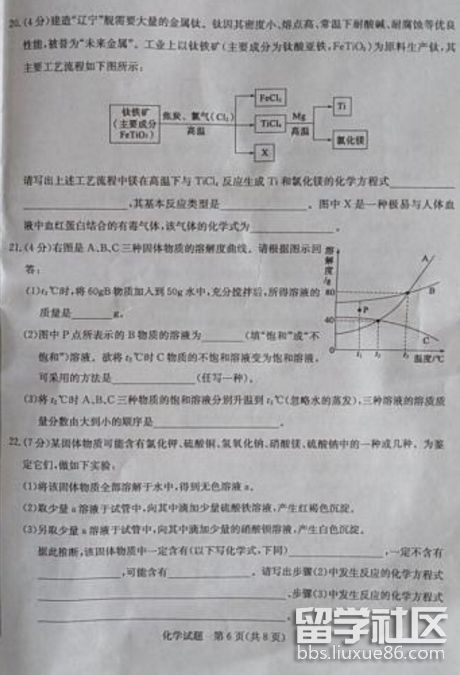 20.(4分)建造“辽宁”舰需要大量的金属钛。钛因其密度小、熔点高、常温下耐酸碱、耐腐蚀等优良
性能,被誉为“未来金属”。工业上以钛铁矿(主要成分为钛酸亚铁,FeTiO₃)为原料生产钛,其
主要工艺流程如下图所示:
钛铁矿
(主要成分
FeTiO₃)
焦炭、氯气(Cl₂)
高温
FeCl₃
TiCl₄
X
Mg
高温
Ti
氯化镁
请写出上述工艺流程中镁在高温下与 TiCl₄ 反应生成 Ti 和氯化镁的化学方程式
,其基本反应类型是 。图中 X 是一种极易与人体血
液中血红蛋白结合的有毒气体,该气体的化学式为 。
21.(4分)右图是 A、B、C 三种固体物质的溶解度曲线。请根据图示回
答:
(1)t₃℃时,将 60gB 物质加入到 50g 水中,充分搅拌后,所得溶液的
质量是 g。
(2)图中 P 点所表示的 B 物质的溶液为 (填“饱和”或“不
饱和”)溶液。欲将 t₂℃时 C 物质的不饱和溶液变为饱和溶液,
可采用的方法是 (任写一种)。
(3)将 t₂℃时 A、B、C 三种物质的饱和溶液分别升温到 t₃℃(忽略水的蒸发),三种溶液的溶质质
量分数由大到小的顺序是
溶解度/g
80
40
A
B
P
C
t₁
t₂
t₃
温度/℃
22.(7分)某固体物质可能含有氯化钾、硫酸铜、氢氧化钠、硝酸镁、硫酸钠中的一种或几种。为鉴
定它们,做如下实验:
(1)将该固体物质全部溶解于水中,得到无色溶液 a。
(2)取少量 a 溶液于试管中,向其中滴加少量硫酸铁溶液,产生红褐色沉淀。
(3)另取少量 a 溶液于试管中,向其中滴加少量的硝酸钡溶液,产生白色沉淀。
据此推断,该固体物质中一定含有(以下写化学式,下同) ,一定不含有
,可能含有 。请写出步骤(2)中发生反应的化学方程式
、步骤(3)中发生反应的化学方程式
化学试题 第 6 页(共 8 页)
留学社区
bbs.liuxue86.com